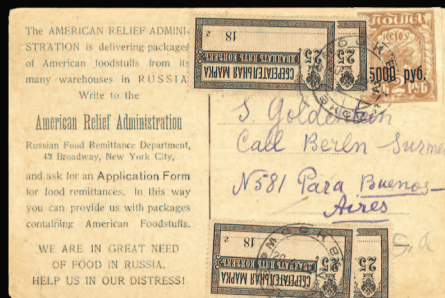 The AMERICAN RELIEF ADMINI-
STRATION is delivering packages
of American foodstuffs from its
many warehouses in RUSSIA
Write to the
American Relief Administration
Russian Food Remittance Department,
42 Broadway, New York City,
and ask for an Application Form
for food remittances. In this way
you can provide us with packages
containing American Foodstuffs.
WE ARE IN GREAT NEED
OF FOOD IN RUSSIA.
HELP US IN OUR DISTRESS!
25
СБЕРЕГАТЕЛЬНАЯ МАРКА
ДВАДЦАТЬ ПЯТЬ КОПѢЕКЪ
18
25
5000 руб.
S. Goldstein
Call Berln
N581 Para Buenos-
Aires
S.a
25
СБЕРЕГАТЕЛЬНАЯ МАРКА
ДВАДЦАТЬ ПЯТЬ КОПѢЕКЪ
18
25